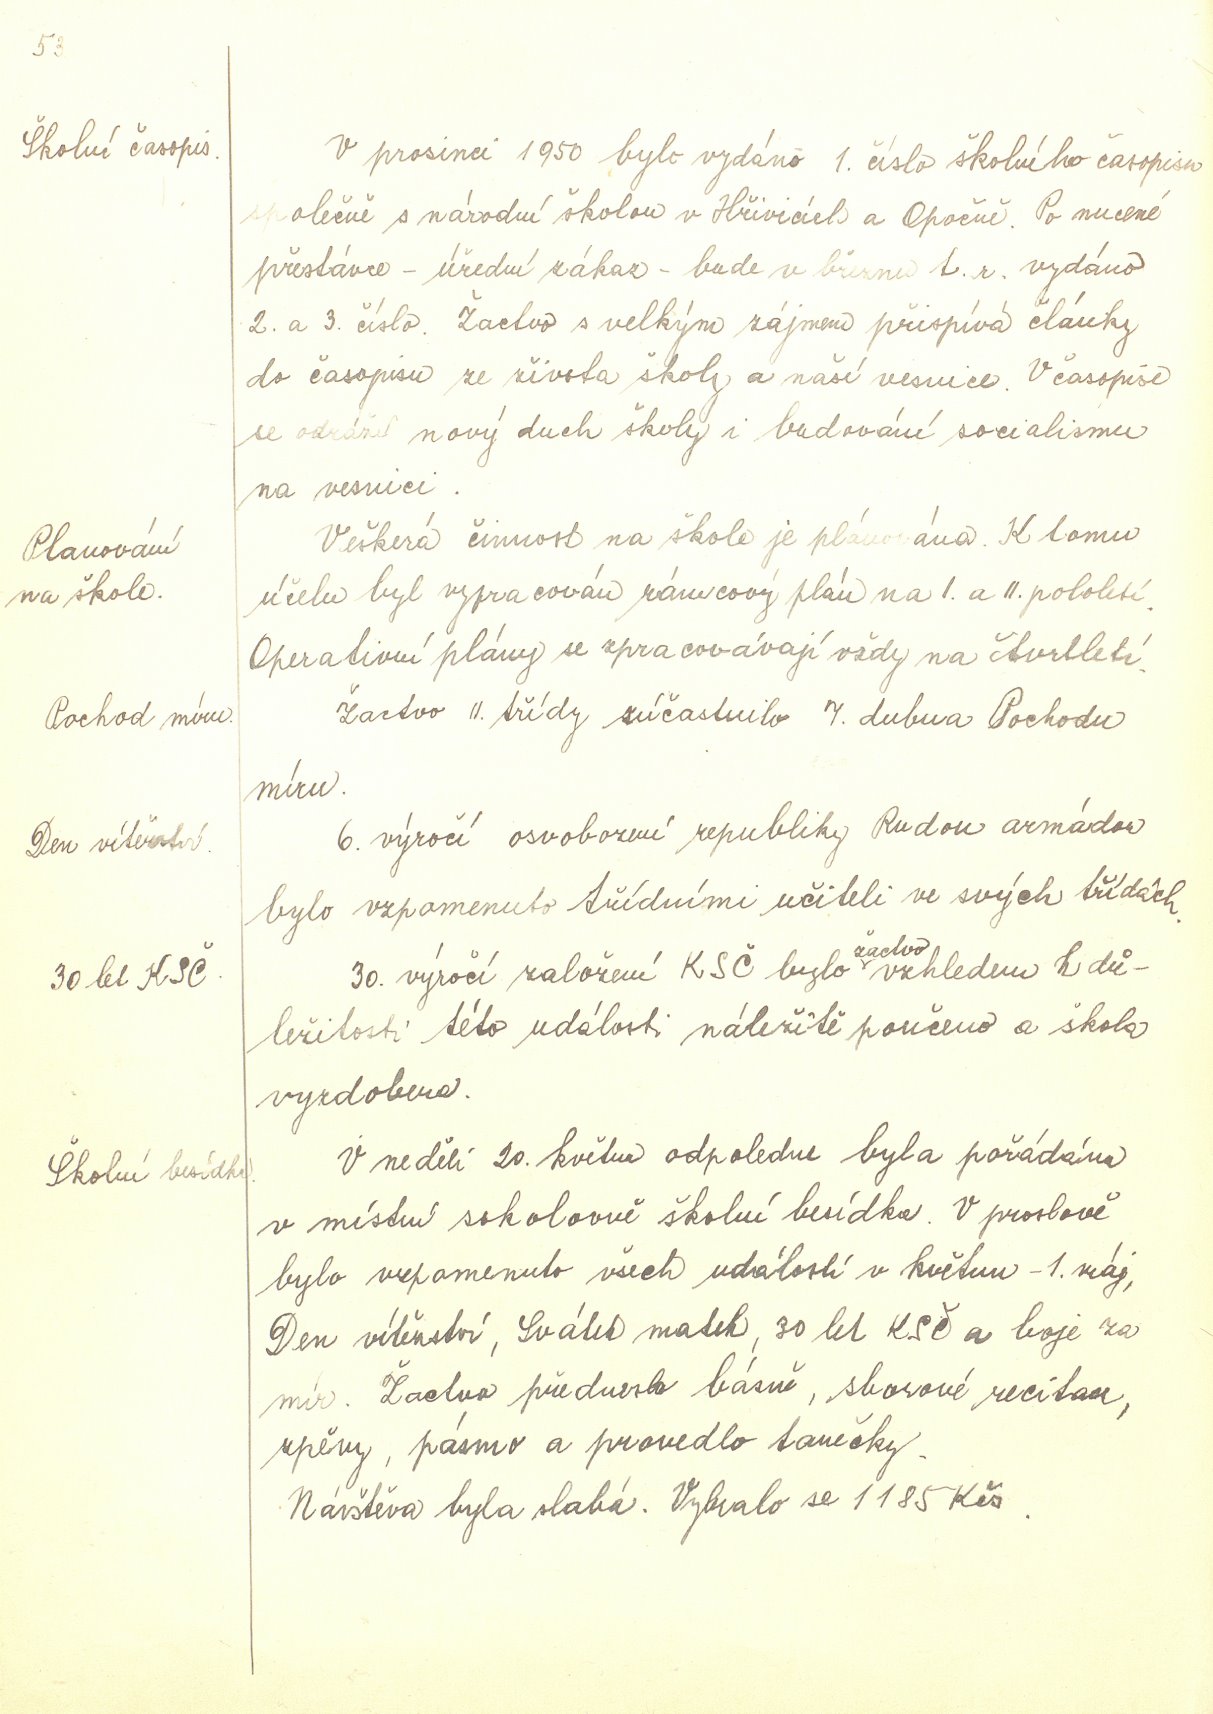 53
Školní časopis.
V prosinci 1950 bylo vydáno 1. číslo školního časopisu
společně s národní školou v Hřivicích a Opočně. Po nucené
přestávce - úřední zákaz - bude v březnu t. r. vydáno
2. a 3. číslo. Žactvo s velkým zájmem přispívá články
do časopisu ze života školy a naší vesnice. V časopise
se odráží nový duch školy i budování socialismu
na vesnici.
Plánování
na škole.
Veškerá činnost na škole je plánována. K tomu
účelu byl vypracován rámcový plán na I. a II. pololetí.
Operativní plány se zpracovávají vždy na čtvrtletí.
Pochod míru.
Žactvo II. třídy zúčastnilo 7. dubna Pochodu
míru.
Den vítězství.
6. výročí osvobození republiky Rudou armádou
bylo vzpomenuto třídními učiteli ve svých třídách.
30 let KSČ.
30. výročí založení KSČ bylo žactvo vzhledem k dů-
ležitosti této události náležitě poučeno a škola
vyzdobena.
Školní besídka.
V neděli 20. května odpoledne byla pořádána
v místní sokolovně školní besídka. V proslově
bylo vzpomenuto všech událostí v květnu - 1. máj,
Den vítězství, Svátek matek, 30 let KSČ a boje za
mír. Žactvo předneslo básně, sborové recitace,
zpěvy, pásmo a provedlo tanečky.
Návštěva byla slabá. Vybralo se 1185 Kčs.